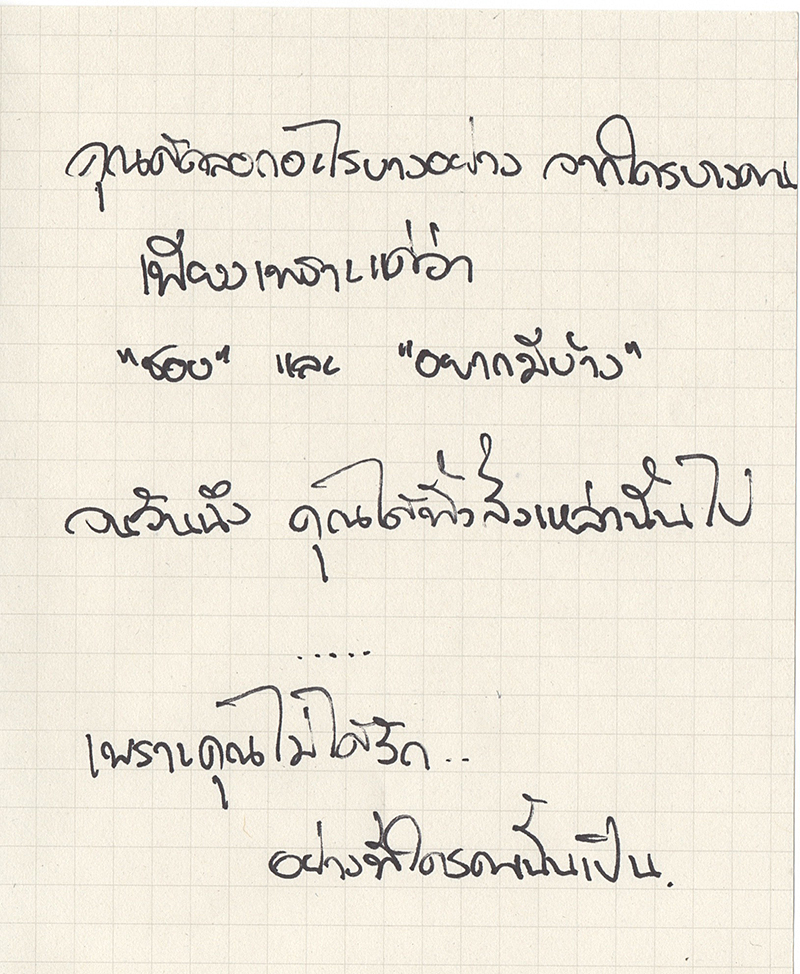 คุณคัดลอกอะไรบางอย่าง จากใครบางคน
เพียงเพราะแค่ว่า
"ชอบ" และ "อยากมีบ้าง"
จนวันนึง คุณได้ทิ้งสิ่งเหล่านั้นไป
.....
เพราะคุณไม่ได้รัก..
อย่างที่ใครคนนั้นเป็น.